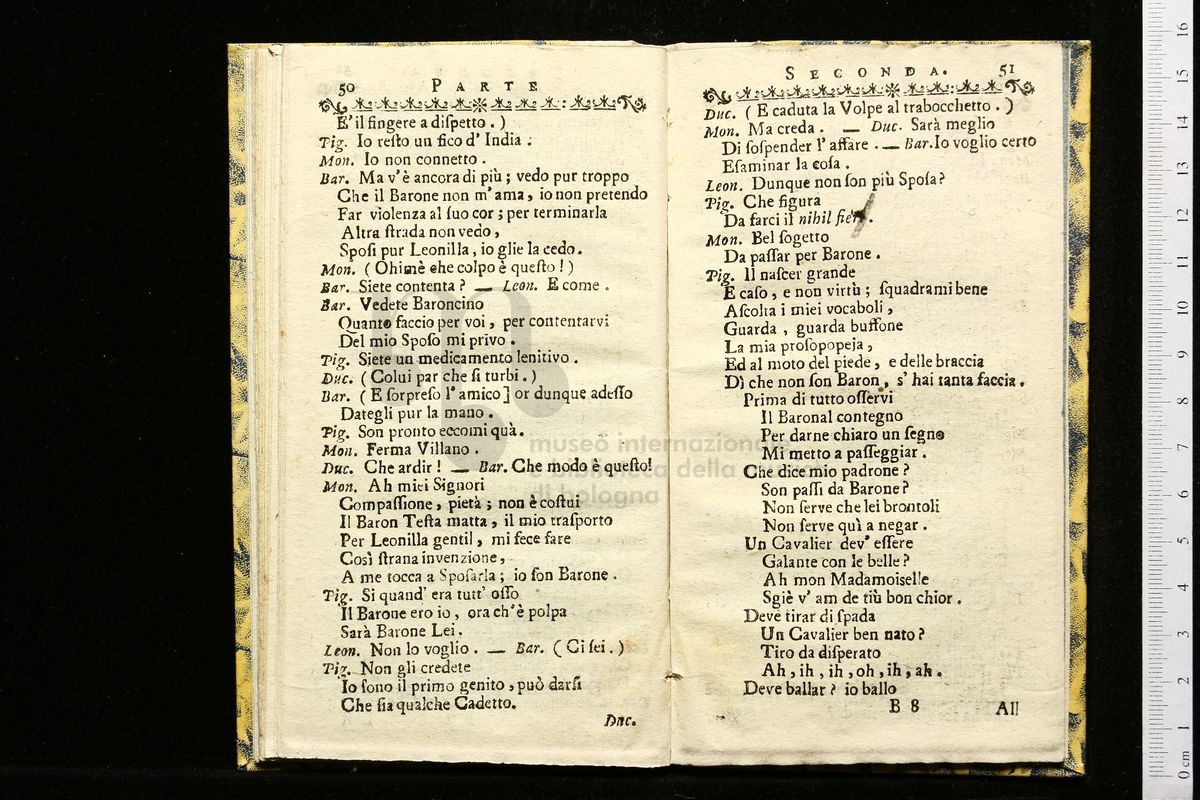 50 PARTE
E' il fingere a dispetto . )
Pig. Io resto un fico d' India .
Mon. Io non connetto .
Bar. Ma v' è ancora di più ; vedo pur troppo
Che il Barone non m' ama , io non pretendo
Far violenza al suo cor ; per terminarla
Altra strada non vedo ,
Sposi pur Leonilla , io glie la cedo .
Mon. ( Ohimè che colpo è questo ! )
Bar. Siete contenta ? — Leon. E come .
Bar. Vedete Baroncino
Quanto faccio per voi , per contentarvi
Del mio Sposo mi privo .
Pig. Siete un medicamento lenitivo .
Duc. ( Colui par che si turbi . )
Bar. ( E sorpreso l' amico ] or dunque adesso
Dategli pur la mano .
Pig. Son pronto eccomi quà .
Mon. Ferma Villano .
Duc. Che ardir ! — Bar. Che modo è questo!
Mon. Ah miei Signori
Compassione , pietà ; non è costui
Il Baron Testa matta , il mio trasporto
Per Leonilla gentil , mi fece fare
Così strana invenzione ,
A me tocca a Sposarla ; io son Barone .
Pig. Si quand' era tutt' osso
Il Barone ero io , ora ch' è polpa
Sarà Barone Lei .
Leon. Non lo voglio . — Bar. ( Ci sei . )
Pig. Non gli credete
Io sono il primo genito , può darsi
Che sia qualche Cadetto.
Duc.
SECONDA. 51
Duc. ( E caduta la Volpe al trabocchetto . )
Mon. Ma creda . — Duc. Sarà meglio
Di sospender l' affare . — Bar. Io voglio certo
Esaminar la cosa .
Leon. Dunque non son più Sposa?
Pig. Che figura
Da farci il nihil fieri .
Mon. Bel sogetto
Da passar per Barone .
Pig. Il nascer grande
E caso , e non virtù ; squadrami bene
Ascolta i miei vocaboli ,
Guarda , guarda buffone
La mia prosopopeja ,
Ed al moto del piede , e delle braccia
Dì che non son Baron , s' hai tanta faccia .
Prima di tutto osservi
Il Baronal contegno
Per darne chiaro un segno
Mi metto a passeggiar .
Che dice mio padrone ?
Son passi da Barone ?
Non serve che lei brontoli
Non serve quì a negar .
Un Cavalier dev' essere
Galante con le belle ?
Ah mon Madamoiselle
Sgiè v' am de tiù bon chior .
Deve tirar di spada
Un Cavalier ben nato ?
Tiro da disperato
Ah , ih , ih , oh , ih , ah .
Deve ballar ? io ballo
B 8 All
museo internazionale
e biblioteca della
di bologna
0 cm 1 2 3 4 5 6 7 8 9 10 11 12 13 14 15 16